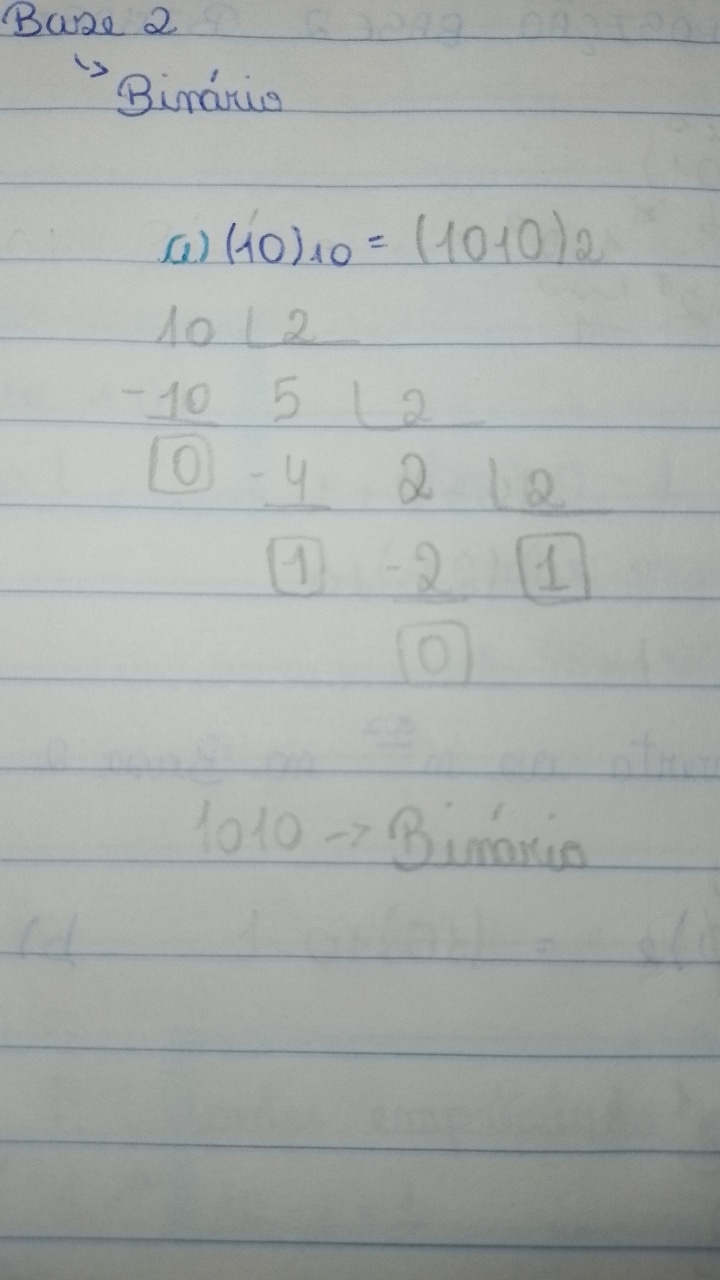 Base 2
↳ Binário
a) (10)10 = (1010)2
10 | 2
-10 5 | 2
0 -4 2 | 2
1 -2 1
0
1010 -> Binário